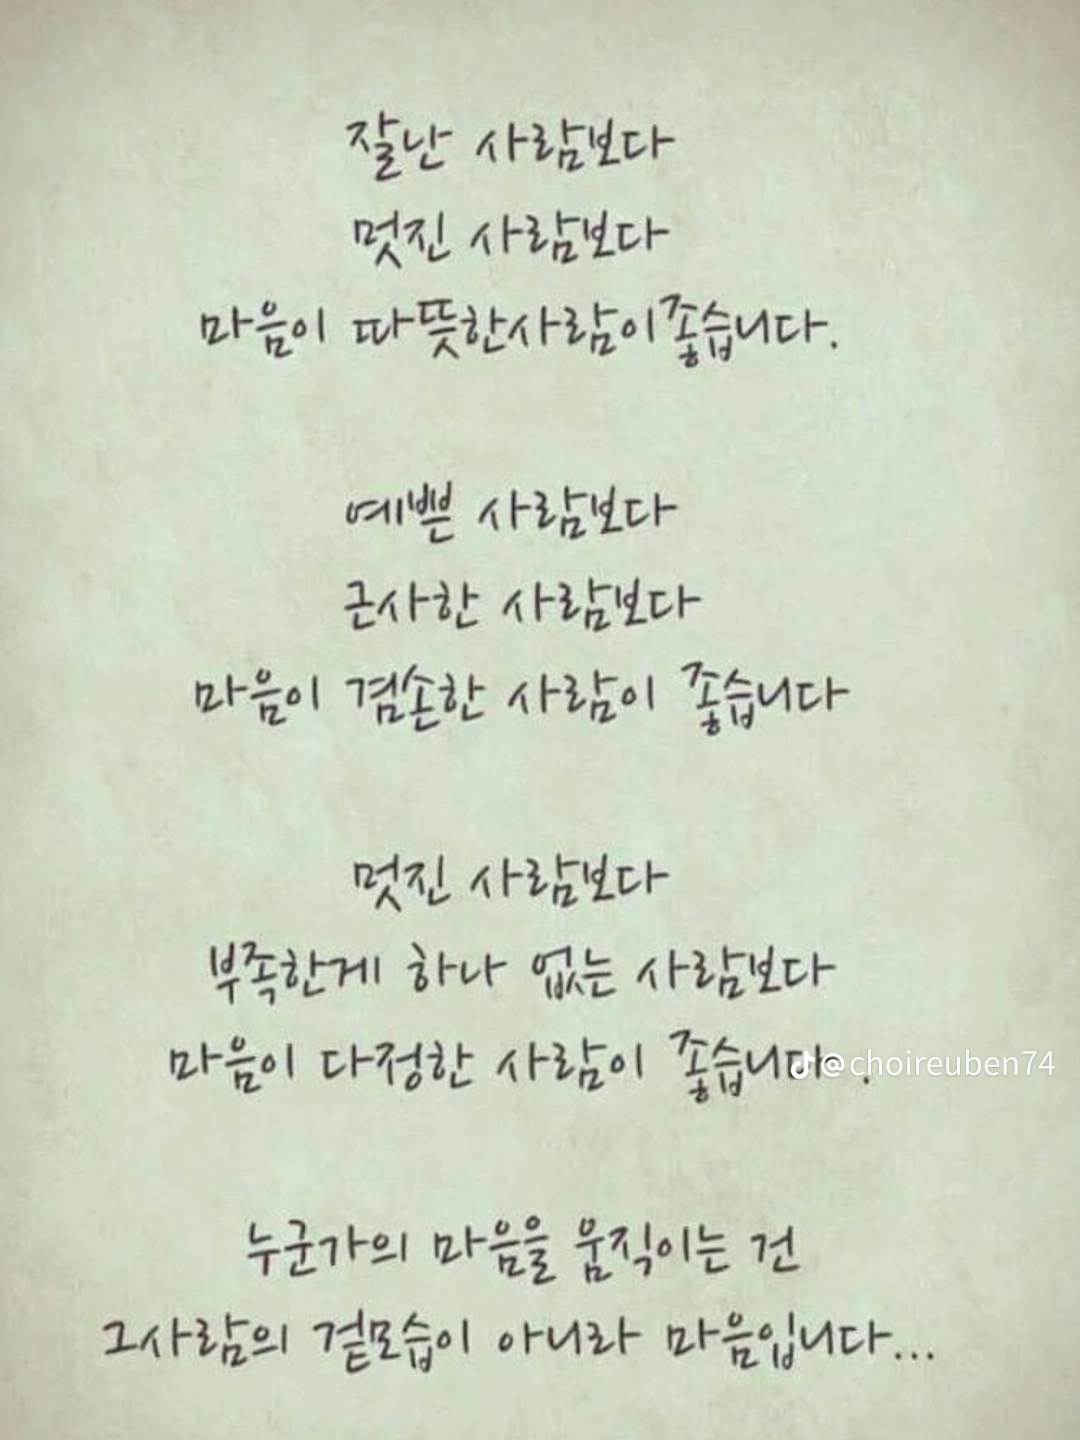 잘난 사람보다
멋진 사람보다
마음이 따뜻한사람이좋습니다.
예쁜 사람보다
근사한 사람보다
마음이 겸손한 사람이 좋습니다
멋진 사람보다
부족한게 하나 없는 사람보다
마음이 다정한 사람이 좋습니다.
@choireuben74
누군가의 마음을 움직이는 건
그사람의 겉모습이 아니라 마음입니다...